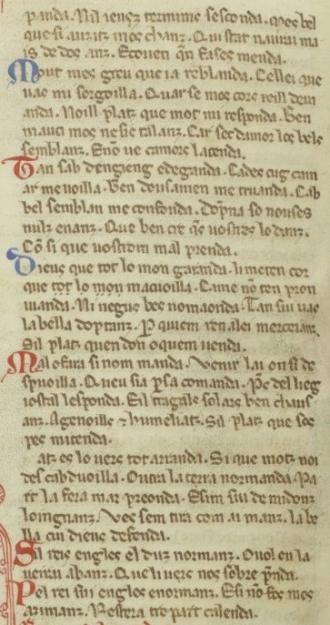 panda. Nil ienz termine sesconda. Mos bel
que si auratz mos chanz. Qui stat naurai ma
is de dos anz. Et coven qn fases menda.
Mout mes greu que ia reblanda. Celleí que
vas mi sorgoilla. Quar se mos cors re ill dem
anda. Noill platz que mot mi responda. Ben
mauci mos nesíe talanz. Car sec damor los bels
semblanz. E no ve camors latenda.
Tan sab dengieng e deganda. Cades cug cam
ar me voilla. Ben dousamen me truanda. Cab
bel semblan me confonda. Dompna so no uses
nulz enanz. Que ben cre qes vostres lo danz.
Co si que vostrom mal prenda.
Dieus que tot lo mon garanda. Li meten cor
que tot lo mon macuoilla. Came no ten pron
vianda. Ni negus bes nomaonda. Tan sui vas
la bella doptanz. P qui em ren a lei mezceianz.
Sil platz quem don o quem venda.
Mal o fara si nom manda. Venir lai on si de
spuoilla. Queu sia psa comanda. Pres del lieg
iosta lesponda. Eil tragals solars ben chaus
anz. A genoills et humeliatz. Sil platz que sos
pes mitenda.
atz es lo vers tot a randa. Si que motz noi
descabduoilla. Outra la terra normanda. Pa
rt la fera mar preonda. E sim sui de midonz
loingnanz. Vos sem tira com aimanz. la be
lla cui dieus defenda.
Sil reis engles el duz normanz. O vol eu la
veirai abanz. Que livers nos sobre prenda.
Pel rei sui engles e normanz. E si no fos mos
azimanz. Restera tro part calenda.